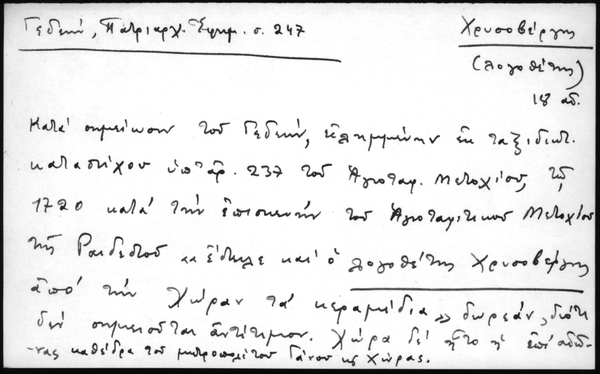 Γεδεών, Πατριαρχ. Εφημ. σ. 247
Χρυσοβέργης
(λογοθέτης)
18 αἰ.
Κατά σημείωσιν τοῦ Γεδεών, εἰλημμένην ἐκ ταξιδιωτ.
καταστίχου ὑπ' ἀρ. 237 τοῦ Ἁγιοταφ. Μετοχίου, τῷ
1720 κατά τήν ἐπισκευήν τοῦ Ἁγιοταφιτικοῦ Μετοχίου
τῆς Ραιδεστοῦ «ἔστειλε καί ὁ λογοθέτης Χρυσοβέργης
ἀπό τήν Χώραν τά κεραμίδια» δωρεάν, διότι
δέν σημειοῦται ἀντίτιμον. Χώρα δέ ἦτο ἡ ἐπί αἰῶ-
νας καθέδρα τοῦ μητροπολίτου Γάνου κ̣ Χώρας.